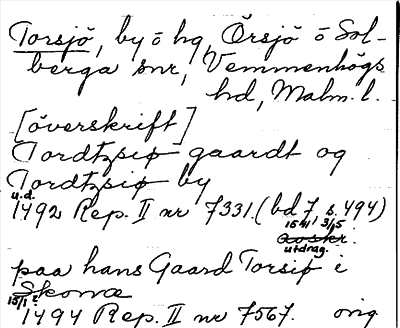 Torsjö, by o hg, Örsjö o Sol-
berga snr, Vemmenhögs
hd, Malm. l.
[överskrift]
Tordtzsiø gaardt og
Tordtzsiø by
u.d.
1492 Rep. II nr 7331. (bd 7 s. 494)
15/11, 3/15.
avskr.
utdrag.
paa hans Gaard Torsiø i
Skonæ
15/1
1494 Rep. II nr 7567. orig